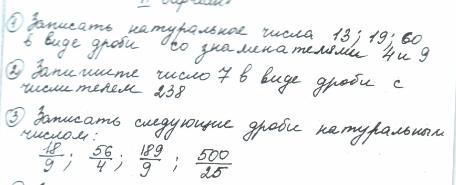 ① Записать натуральное числа 13; 19; 60
в виде дроби со знаменателями 4 и 9
② Запишите число 7 в виде дроби с
числителем 238
③ Записать следующие дроби натуральным
числом:
18/9; 56/4; 189/9; 500/25